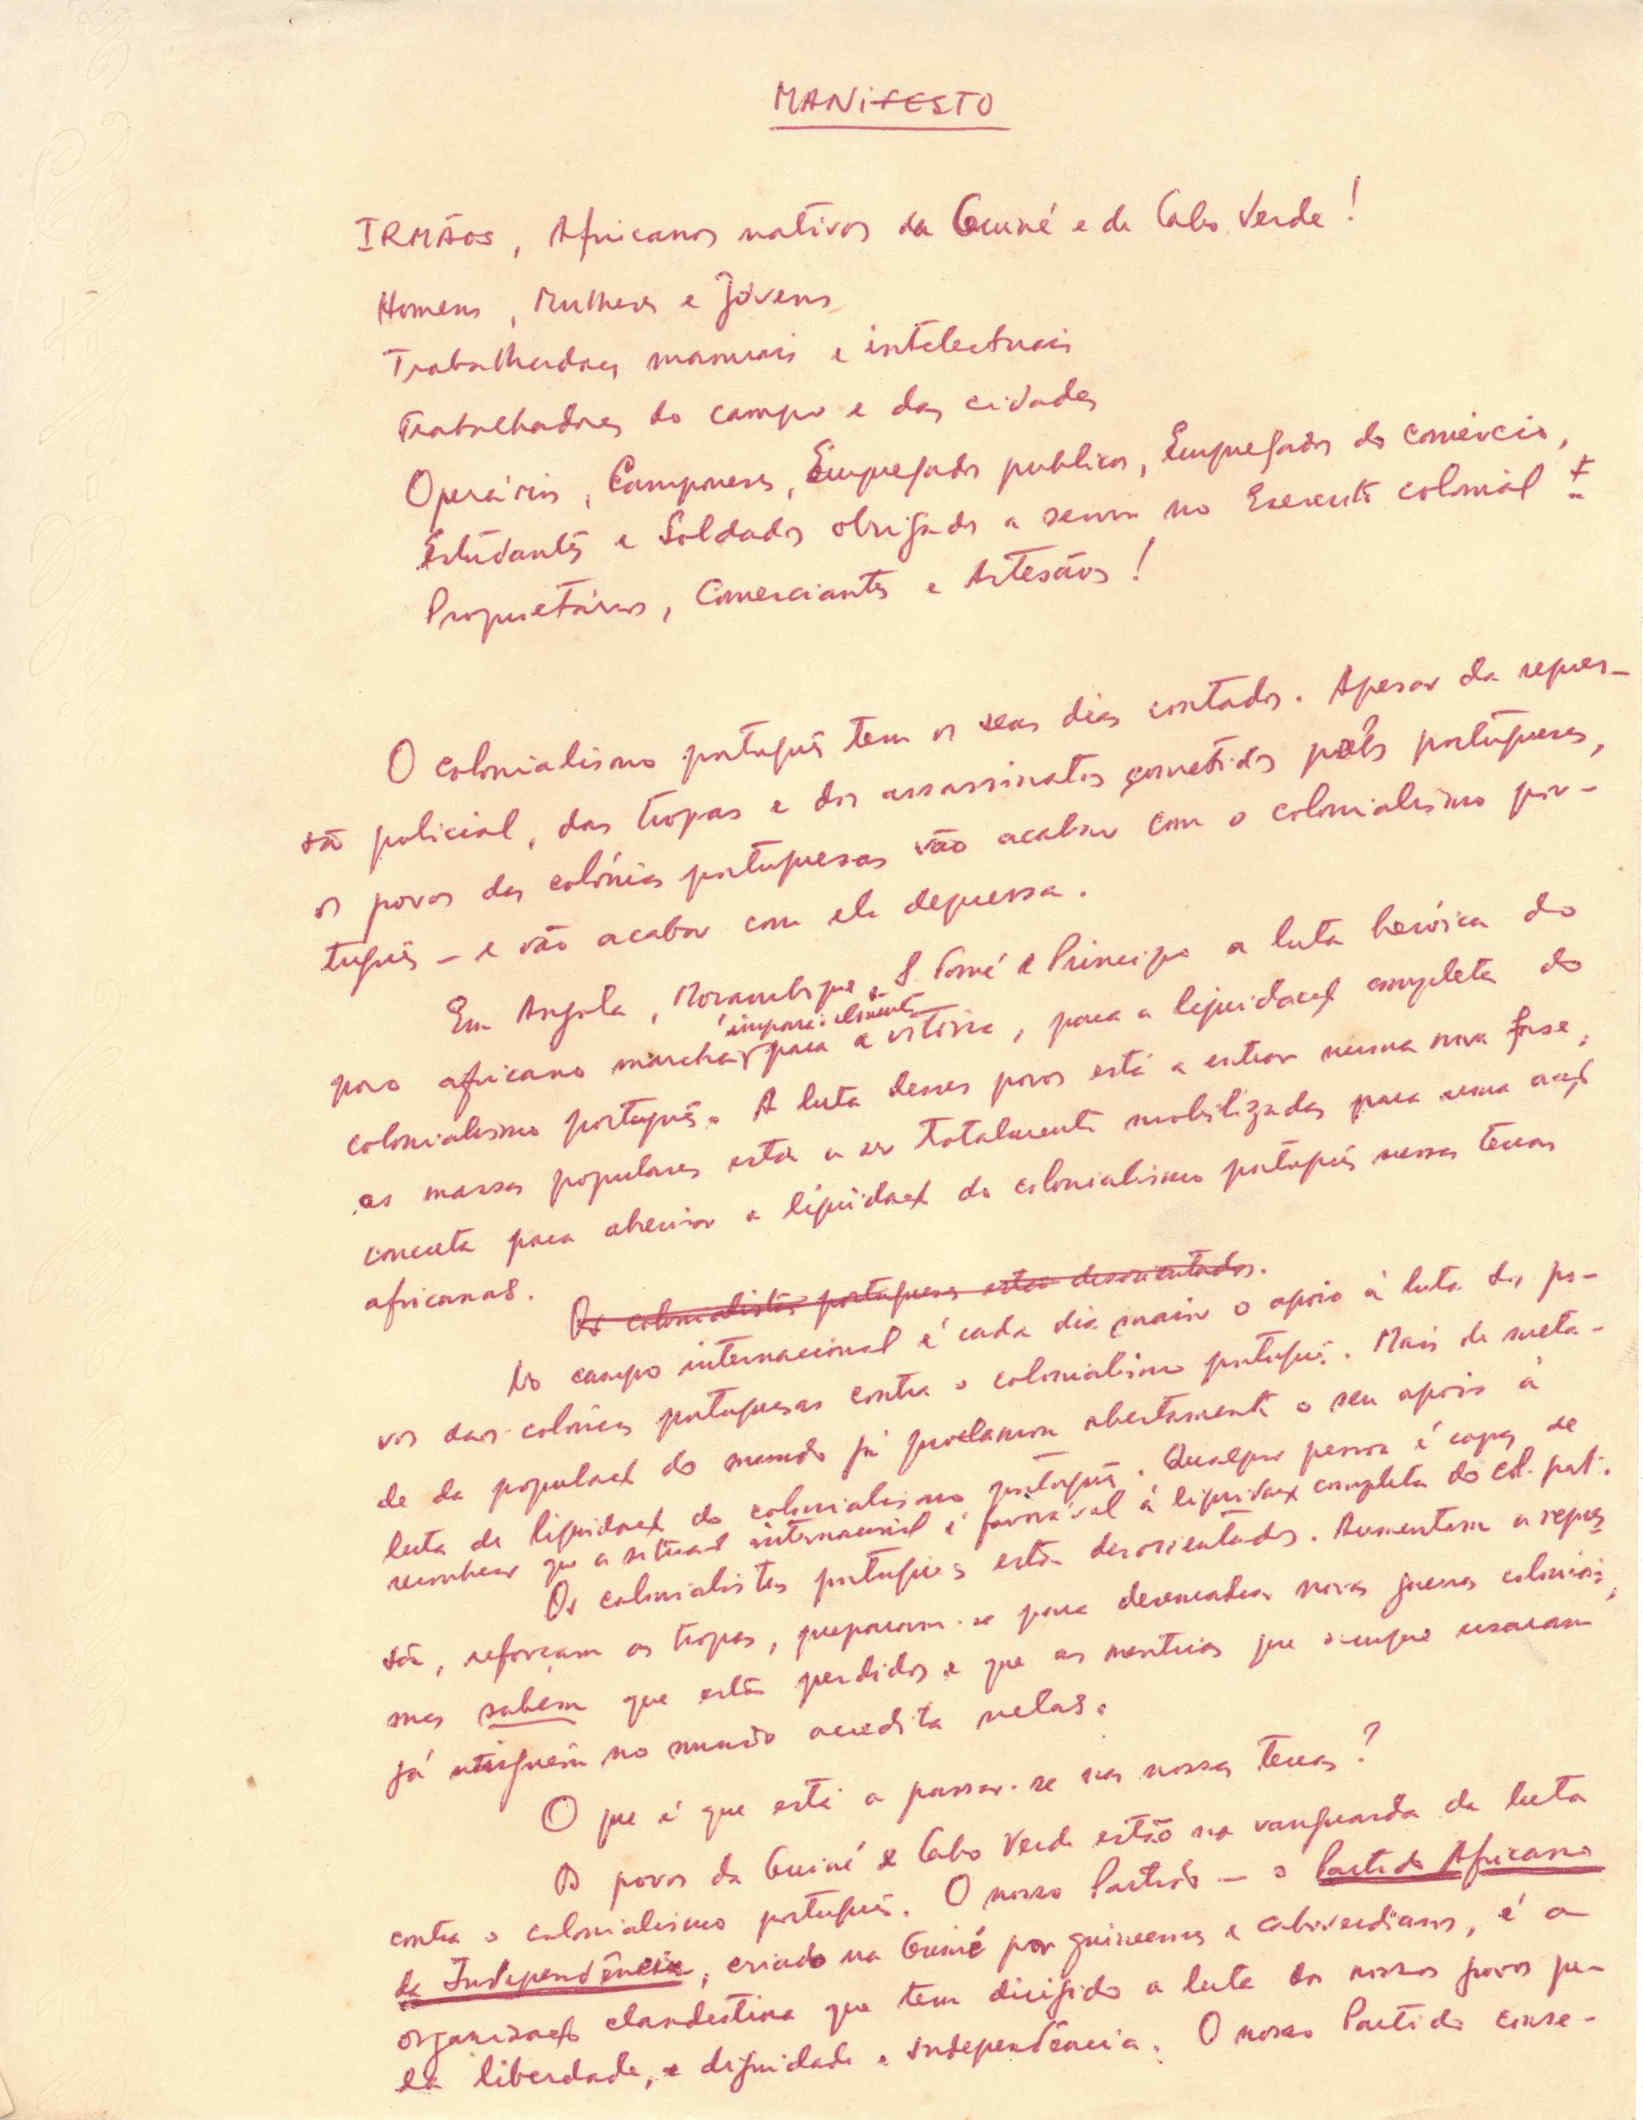 MANIFESTO
IRMÃOS, Africanos nativos da Guiné e de Cabo Verde!
Homens, Mulheres e Jóvens
Trabalhadores manuais e intelectuais
Trabalhadores do campo e das cidades
Operários, Camponeses, Empregados publicos, Empregados do comércio,
Estudantes e Soldados obrigados a servir no Exercito colonial!
Proprietários, Comerciantes e Artesãos!
O colonialismo português tem os seus dias contados. Apesar da repres-
são policial, das tropas e dos assassinatos cometidos pelos portugueses,
os povos das colónias portuguesas vão acabar com o colonialismo por-
tuguês - e vão acabar com ele depressa.
Em Angola, Moçambique e S. Tomé e Principe a luta heróica do
povo africano marcha para a vitória, para a liquidação completa do
colonialismo português. A luta desses povos está a entrar numa nova fase,
as massas populares estão a ser totalmente mobilizadas para uma acção
concreta para abreviar a liquidação do colonialismo português nessas terras
africanas.
Os colonialistas portugueses estão desorientados.
No campo internacional é cada dia maior o apoio à luta dos po-
vos das colónias portuguesas contra o colonialismo português. Mais de meta-
de da população do mundo já proclamou abertamente o seu apoio à
luta de liquidação do colonialismo português. Qualquer pessoa é capaz de
reconhecer que a situação internacional é favorável à liquidação completa do col. port.
Os colonialistas portugueses estão desorientados. Aumentam a repres
são, reforçam as tropas, preparam-se para desencadear novas guerras coloniais,
mas sabem que estão perdidos e que as mentiras que sempre usaram
já ninguém no mundo acredita nelas.
O que é que está a passar-se nas nossas terras?
Os povos da Guiné e Cabo Verde estão na vanguarda da luta
contra o colonialismo português. O nosso Partido - o Partido Africano
da Independência, criado na Guiné por guineenses e caboverdianos, é a
organização clandestina que tem dirigido a luta dos nossos povos pe-
la liberdade, e dignidade e independência. O nosso Partido conse-